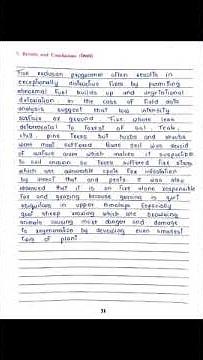 Results and Conclusions
Fire exclusion programme often results in
exceptionally distructive fires by permiting
abnormal fuel builds up and
in the case of field data
analysis suggest that low intensity
surface or ground fire where less
deteremental to forest of sal, Teak,
chil, pine trees but herbs and shrubs
were most suffered. Burnt soil was devoid
of surface cover which makes it susceptible
to soil erosion
which are vulnerable
by insect that and pests. It was also
observed that it is an fire alone responsible
for and grazing because grazing is quit
ubiquitous in upper Himalaya. Especially
goat sheep which are browsing
animals causing more danger and damage
to regeneration by devouring even smallest
of plant
31